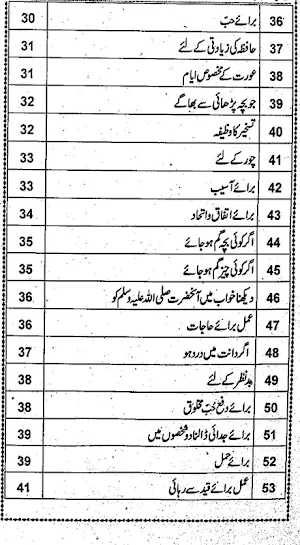 36 برائے حب 30
37 حافظہ کی زیادتی کے لئے 31
38 عورت کے مخصوص ایام 31
39 جو بچہ پڑھائی سے بھاگے 32
40 تسخیر کا وظیفہ 32
41 چور کے لئے 33
42 برائے آسیب 33
43 برائے اتفاق واتحاد 34
44 اگر کوئی بچہ گم ہو جائے 35
45 اگر کوئی چیز گم ہو جائے 35
46 دیکھنا خواب میں آنحضرت صلی اللہ علیہ وسلم کو 36
47 عمل برائے حاجات 36
48 اگر دانت میں درد ہو 37
49 بد نظر کے لئے 38
50 برائے دفع حُبِّ مخلوق 38
51 برائے جدائی ڈالنا دو شخصوں میں 39
52 برائے حمل 39
53 عمل برائے قید سے رہائی 41